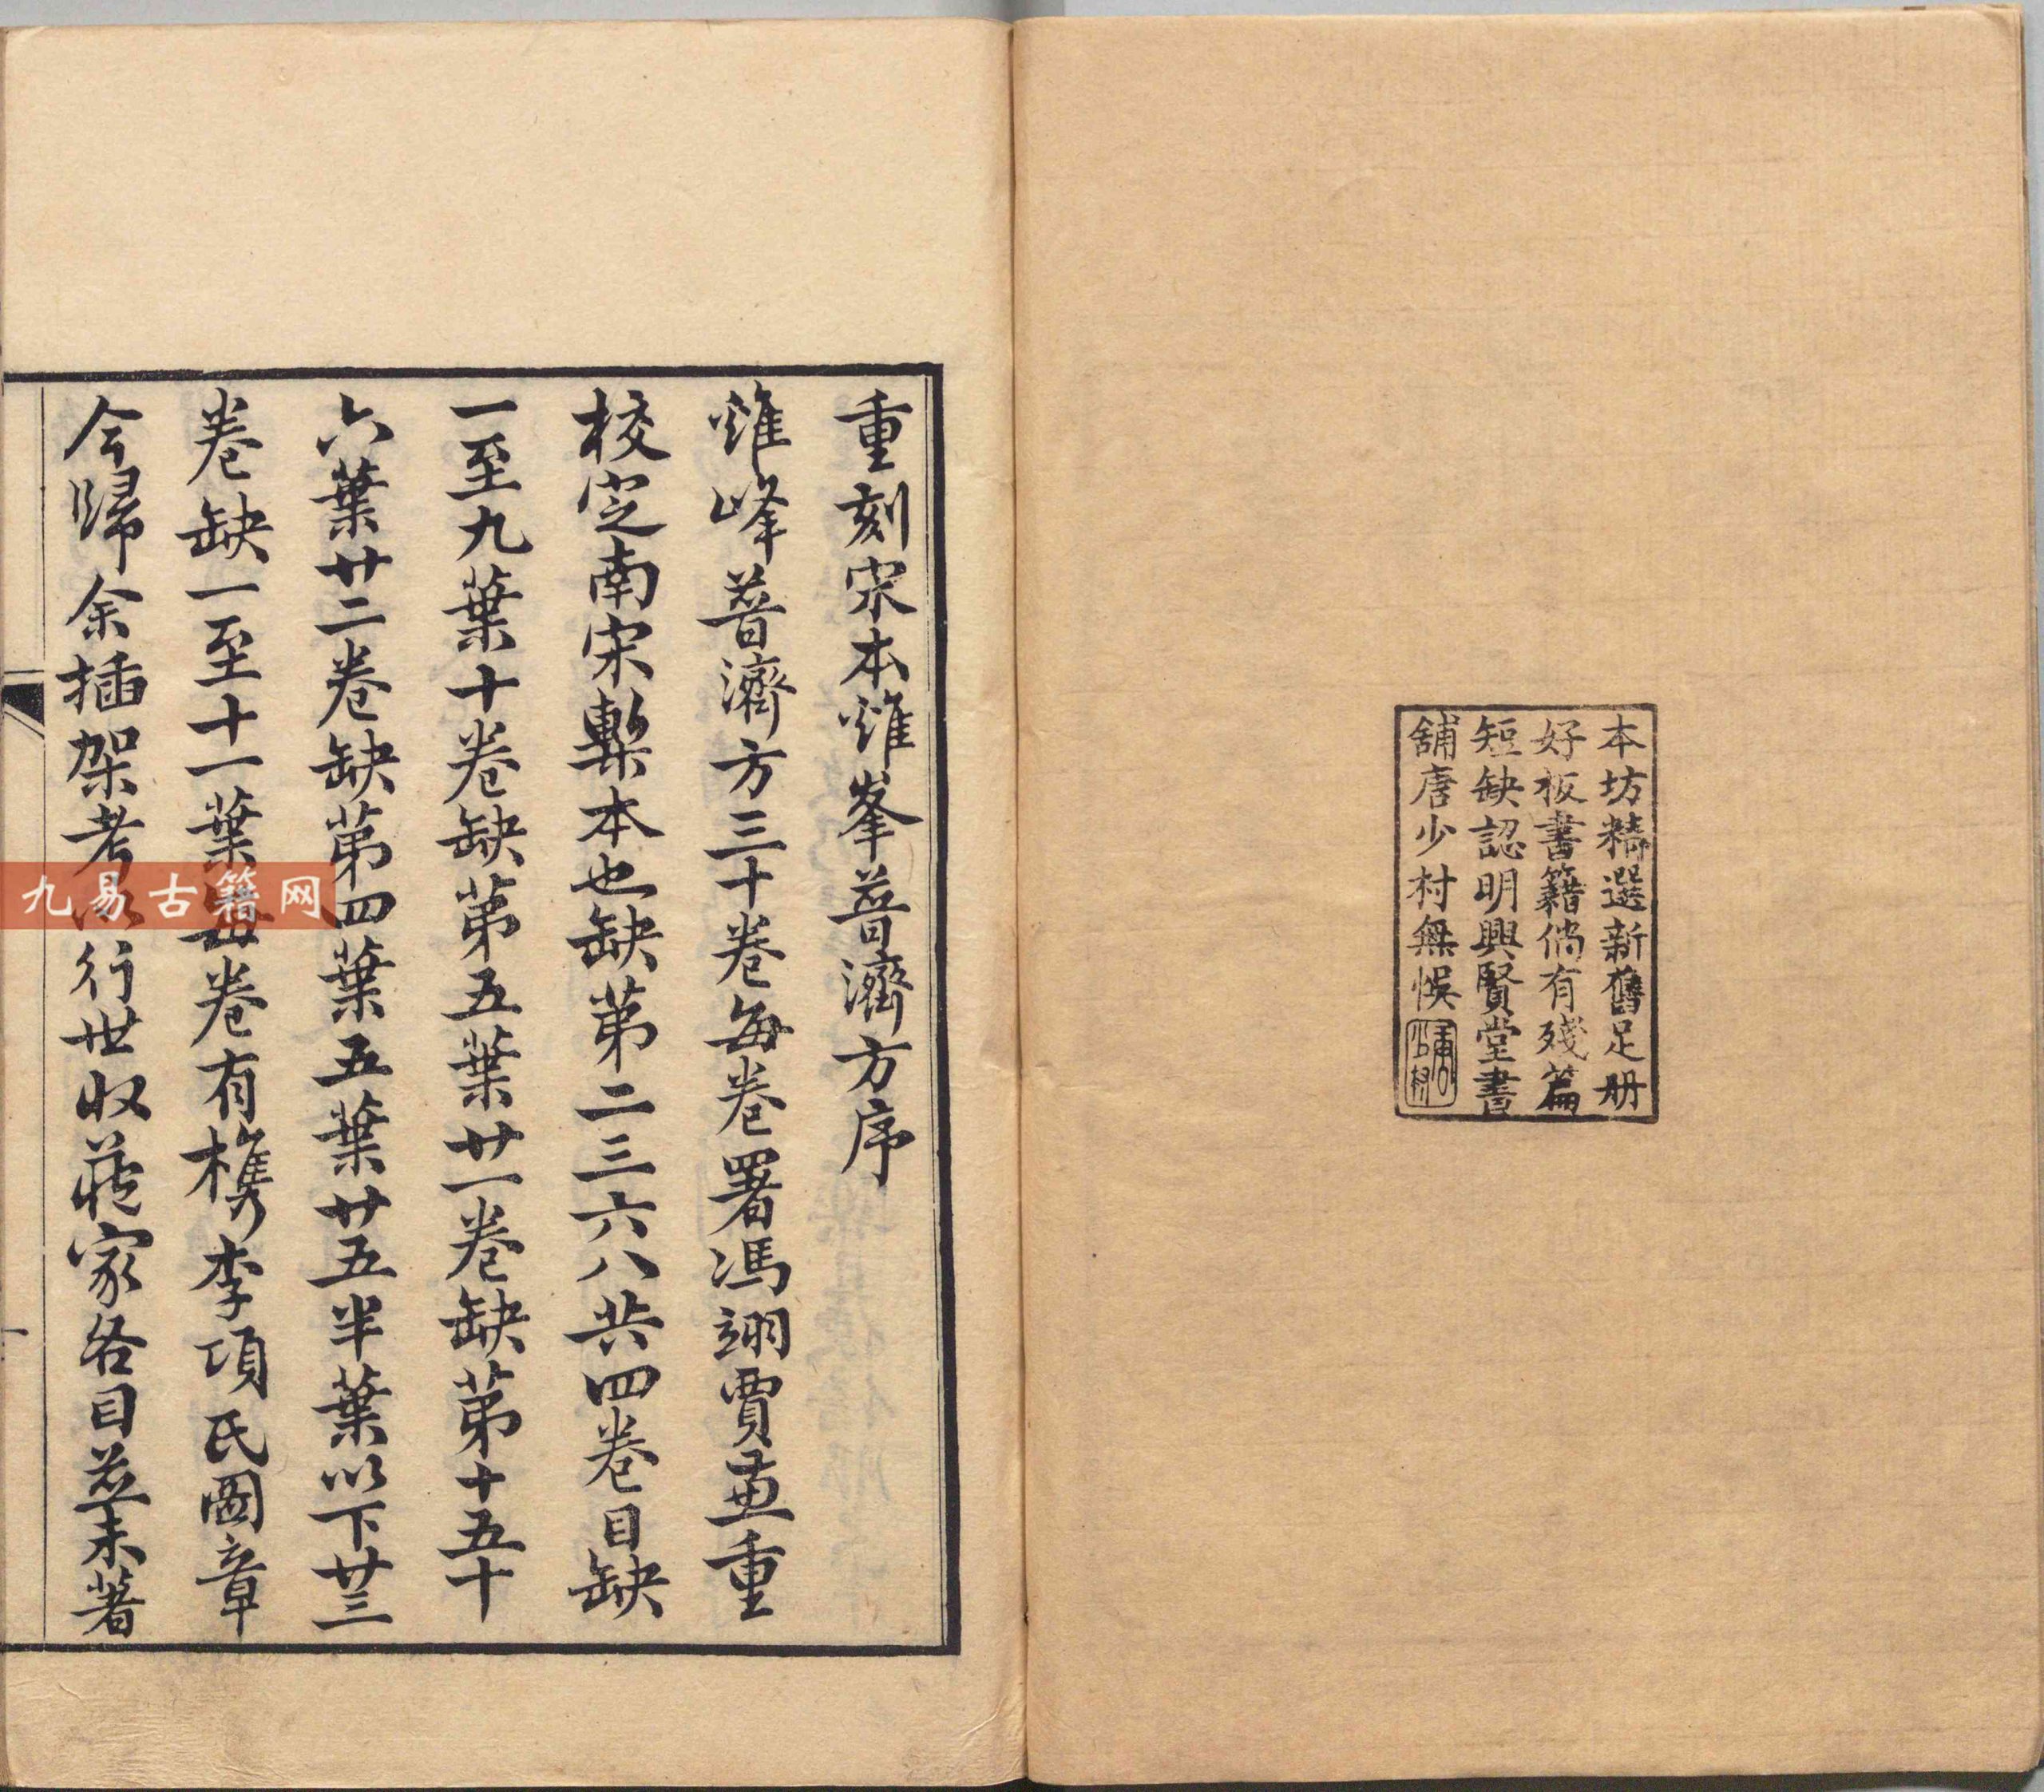 本坊精選新舊足册
好板書籍倘有殘篇
短缺認明興賢堂書
舖唐少村無悞
重刻宋本雞峯普濟方序
雞峰普濟方三十卷每卷署馮翊賈兼重
校定南宋槧本也缺第二三六八共四卷目缺
一至九葉十卷缺第五葉廿一卷缺第十五十
六葉廿二卷缺第四葉五葉廿五半葉以下廿三
卷缺一至十一葉每卷有檇李項氏圖章
今歸余插架考行世収蔵家各目並未著
九易古籍网